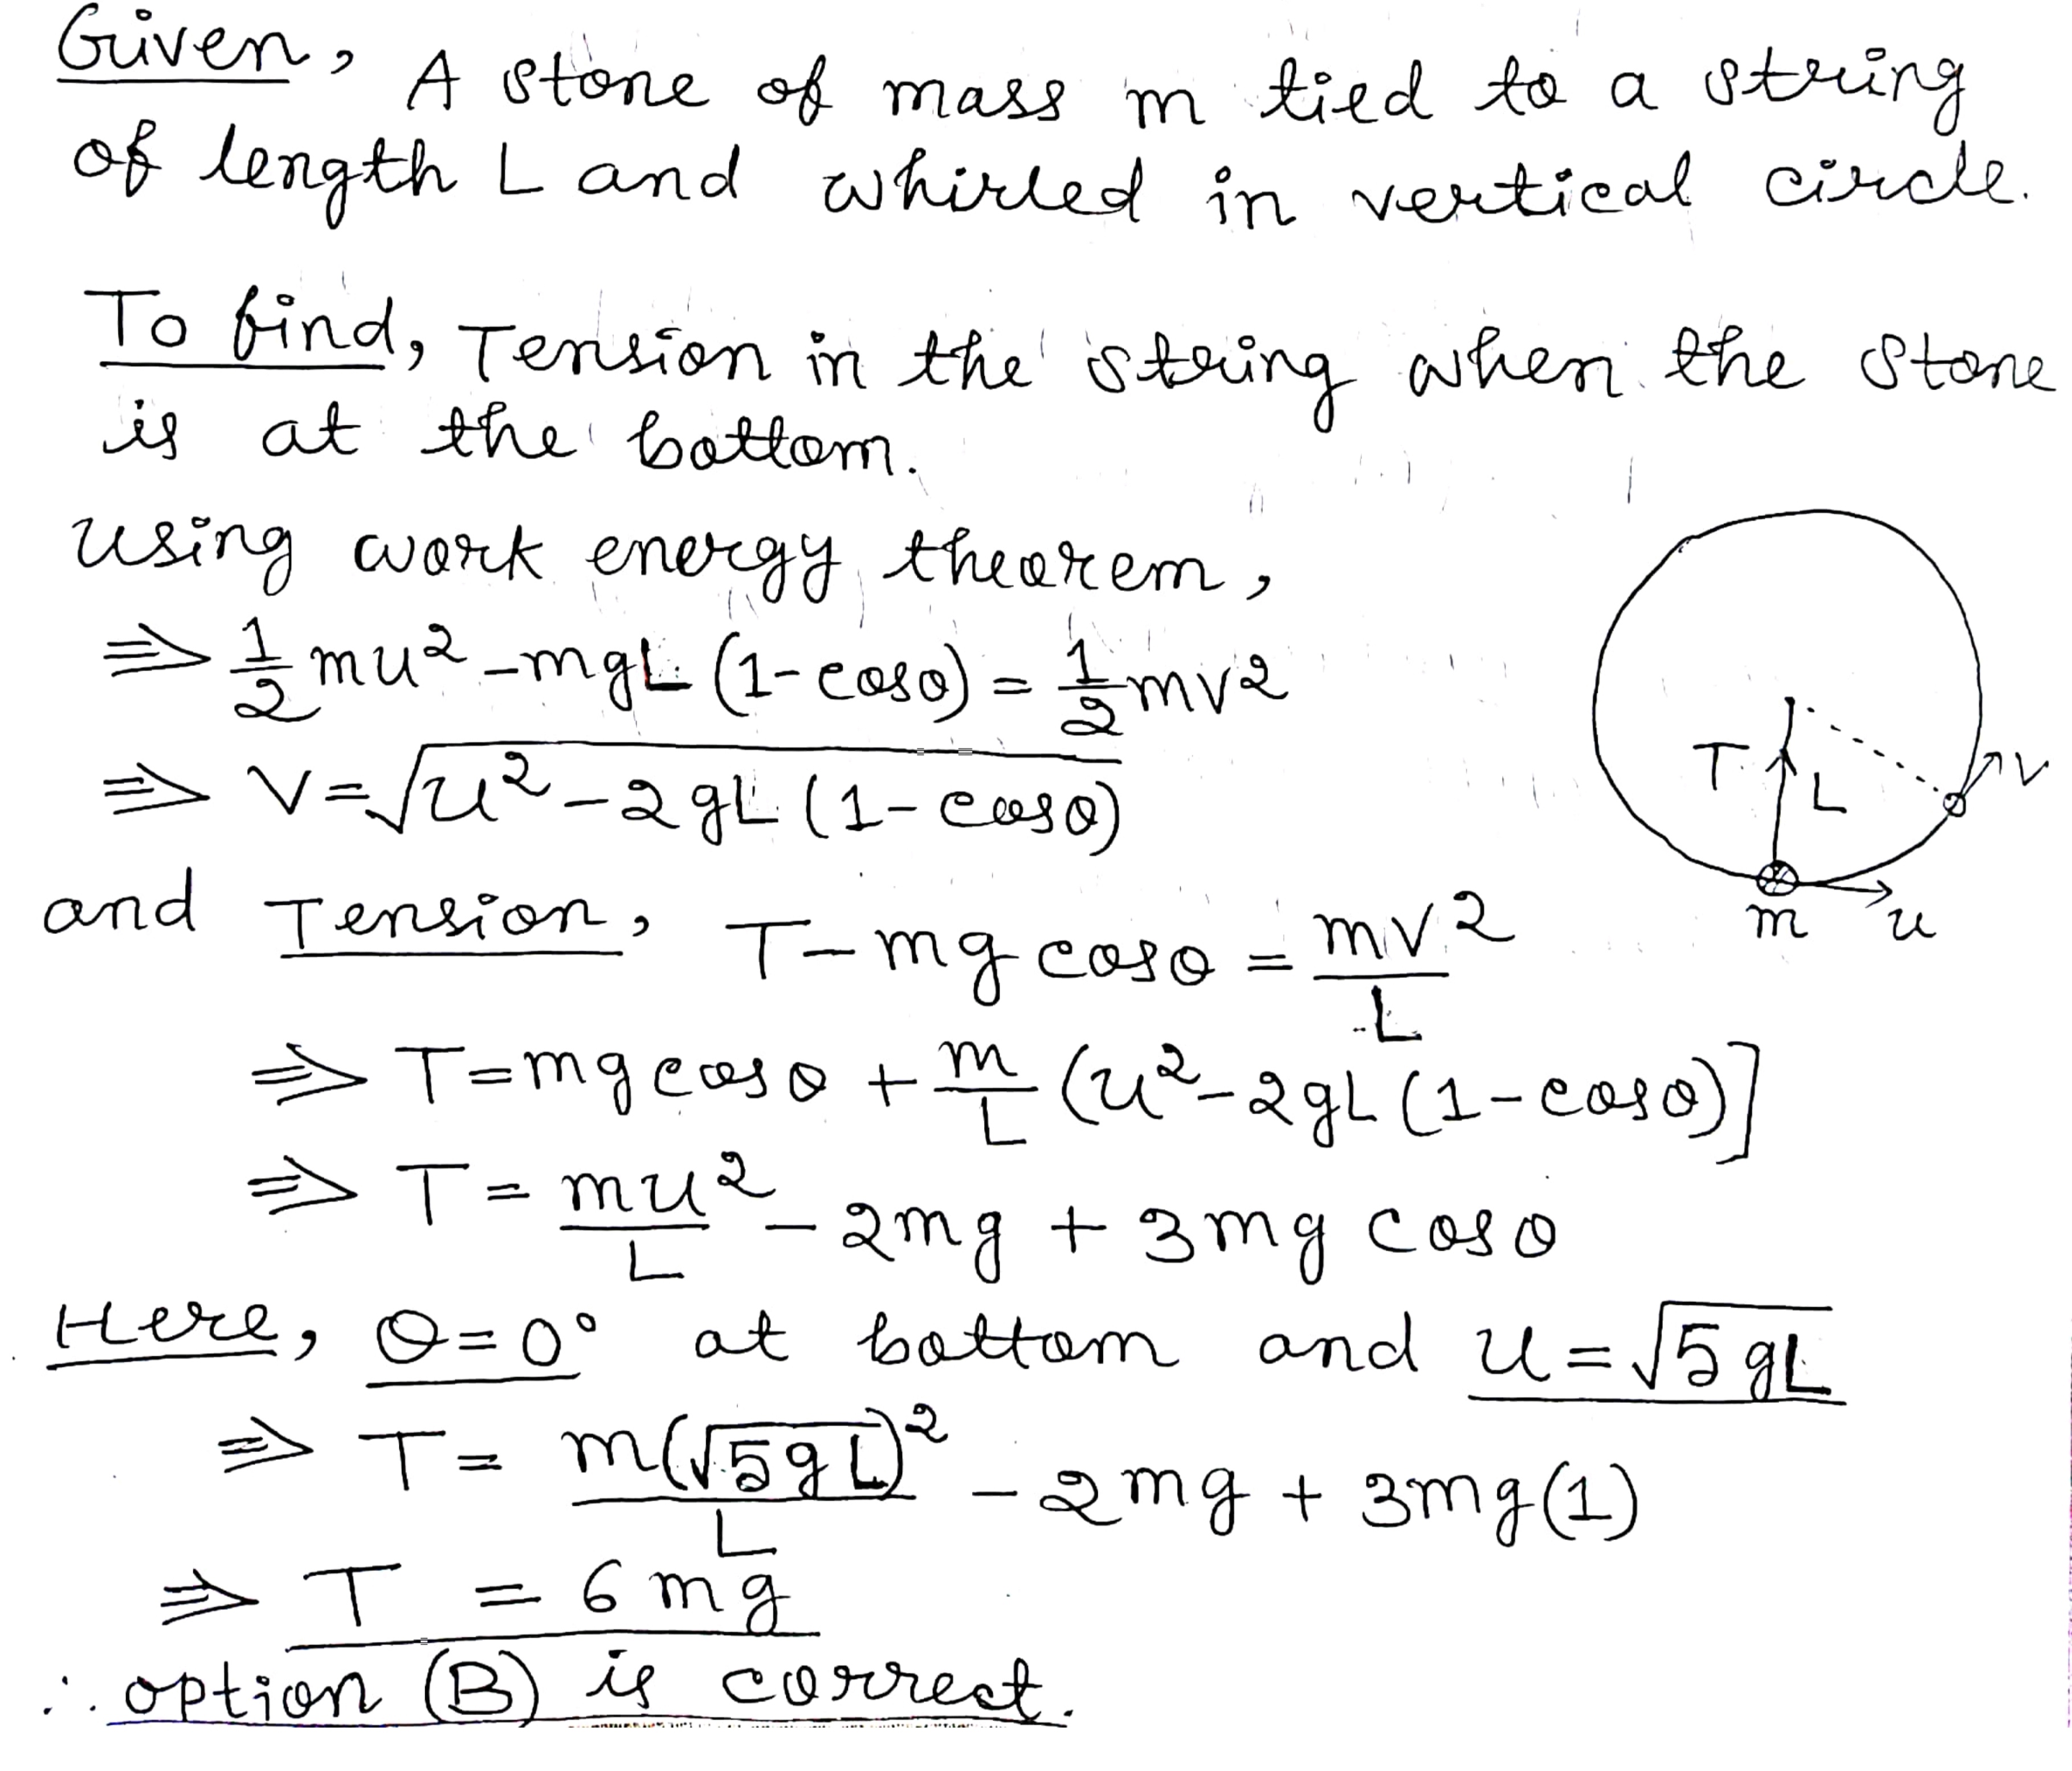 Given, A stone of mass m tied to a string
of length L and whirled in vertical circle.
To find, Tension in the string when the stone
is at the bottom.
using work energy theorem,
⇒ 1/2 mu² - mgL (1-cosθ) = 1/2 mv²
⇒ V = √(u² - 2gL (1-cosθ))
T L v
m u
and Tension, T - mg cosθ = mv²/L
⇒ T = mg cosθ + m/L (u² - 2gL (1-cosθ)]
⇒ T = mu²/L - 2mg + 3mg cosθ
Here, θ = 0° at bottom and u = √5gL
⇒ T = m(√5gL)²/L - 2mg + 3mg(1)
⇒ T = 6mg
∴ option (B) is correct.